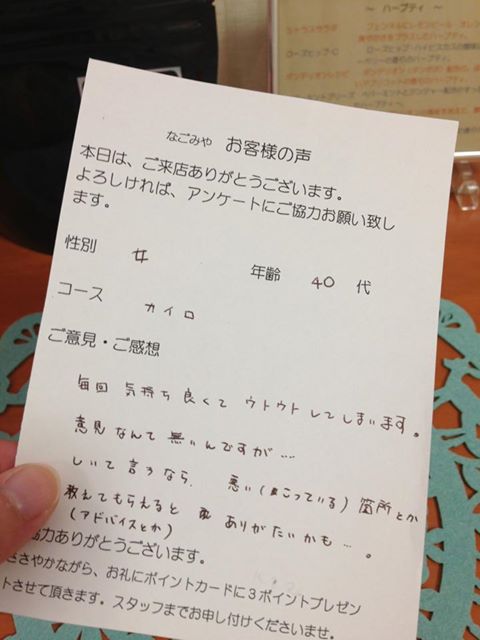 ～ ハーブティ ～
ローズヒップ・C
なごみや お客様の声
本日は、ご来店ありがとうございます。
よろしければ、アンケートにご協力お願い致し
ます。
性別 女 年齢 40 代
コース カイロ
ご意見・ご感想
毎回 気持ち良くて ウトウトしてしまいます。
意見なんて無いんですが…
しいて言うなら、悪い(こっている)箇所とか
教えてもらえると ありがたいかも…。
(アドバイスとか)
協力ありがとうございます。
ささやかながら、お礼にポイントカードに3ポイントプレゼン
トさせて頂きます。スタッフまでお申し付けくださいませ。